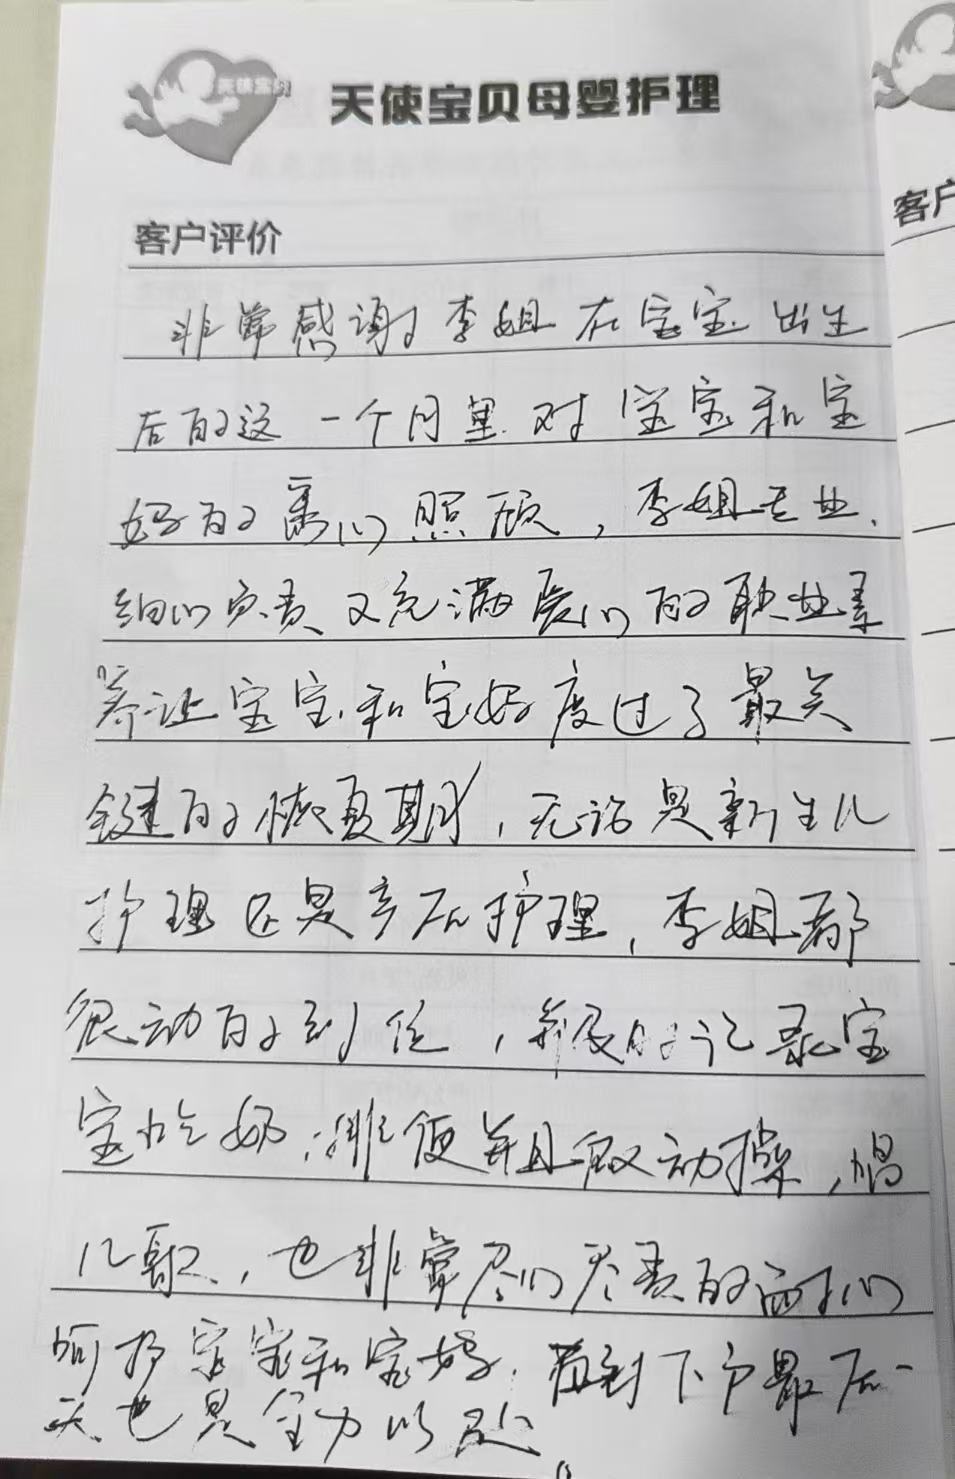 天使宝贝
天使宝贝母婴护理
客户评价
客户
非常感谢李姐在宝宝出生
后的这一个月里对宝宝和宝
妈的离心照顾，李姐专业、
细心负责又充满爱心的职业素
养让宝宝和宝妈度过了最关
键的恢复期，无论是新生儿
护理还是产后护理，李姐都
很动的到位，并及时记录宝
宝吃奶，排便并且做动操，唱
儿歌，也非常尽心尽责的耐心
呵护宝宝和宝妈，直到下户最后一
天也是全力以赴。